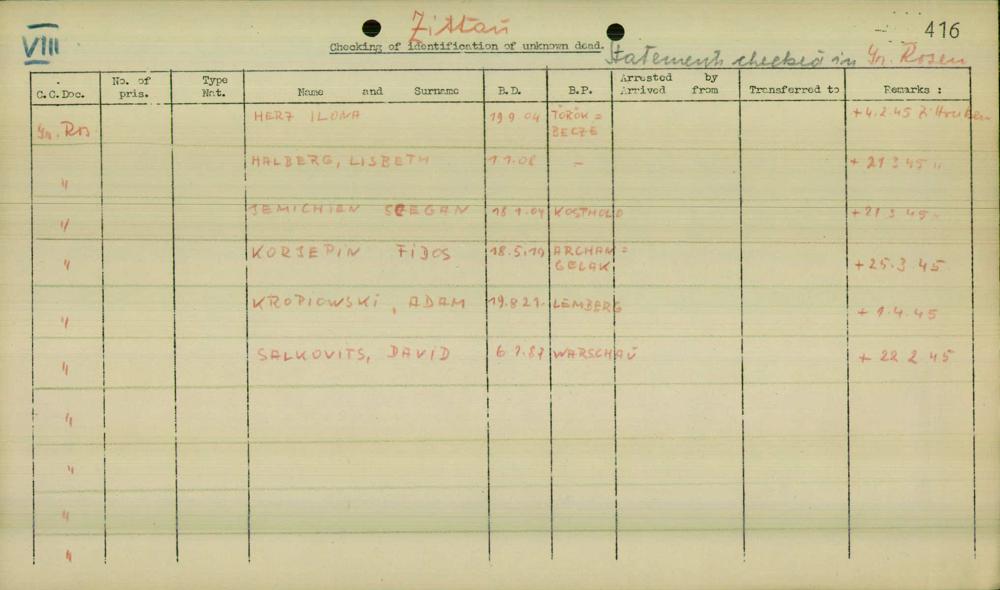 VIII
Zittau
416
Checking of identification of unknown dead.
Statements checked in Gr. Rosen
C.C.Doc. No. of pris. Type Nat. Name and Surname B.D. B.P. Arrested by Arrived from Transferred to Remarks :
Gr. Ros HERZ ILONA 19 9 04 TÖRÖK = BECZE +4.2.45 Zittau
" HALBERG, LISBETH 1.1.08 - + 21 3 45 "
" JEMICHIEN 18 1.04 KOSTHOLO +21 3 45 -
" KORJEPIN FIDOS 18.5.19 ARCHAN = GELAK + 25.3.45
" KROPIOWSKI, ADAM 19.8 21. LEMBERG + 1.4.45
" SALKOVITS, DAVID 6.7.87 WARSCHAU + 22 2 45
"
"
"
"